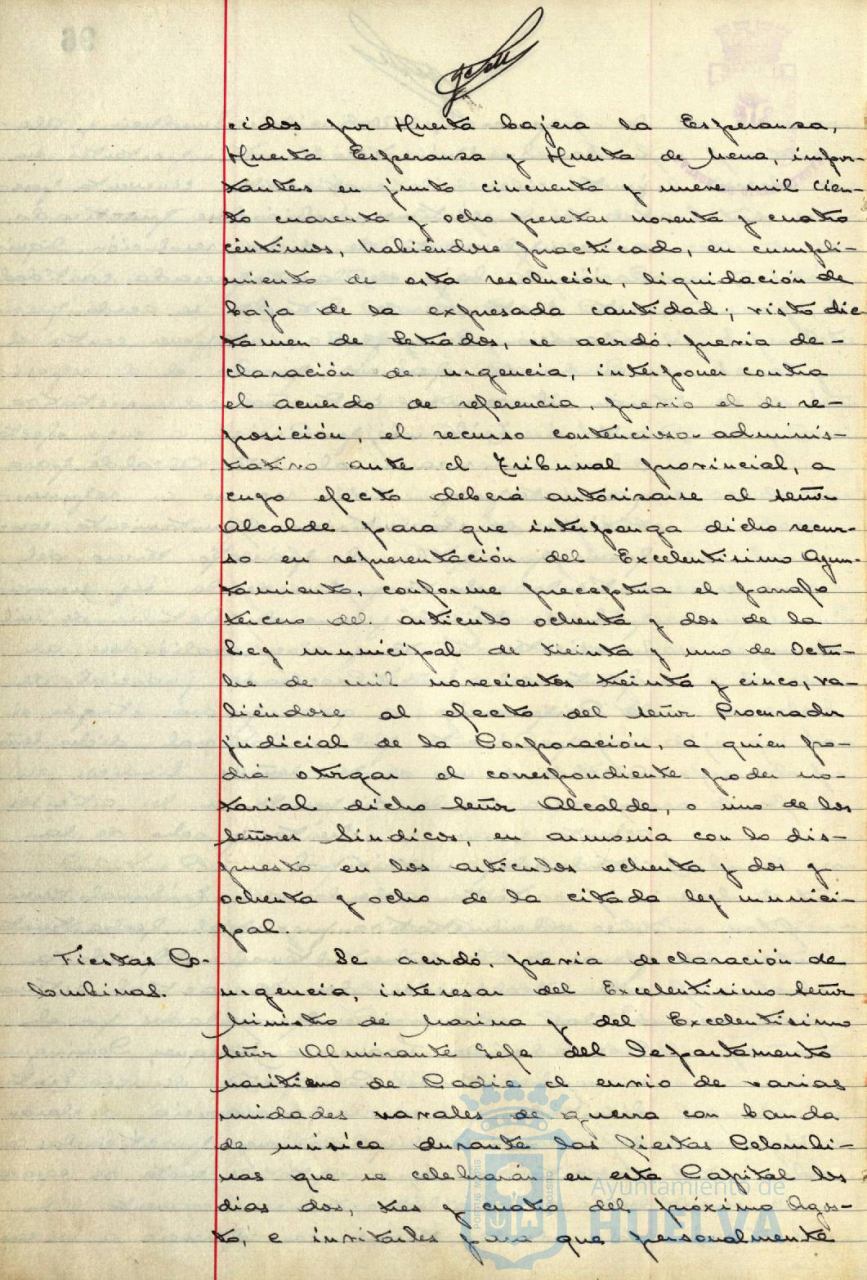 cidos por Huerta bajera la Esperanza,
Huerta Esperanza y Huerta de Mena, impor-
tantes en junto cincuenta y nueve mil cien-
to cuarenta y ocho pesetas noventa y cuatro
céntimos, habiéndose practicado, en cumpli-
miento de esta resolución, liquidación de
baja de la expresada cantidad; visto dic
tamen de Letrados, se acordó, previa de-
claración de urgencia, interponer contra
el acuerdo de referencia, previo el de re-
posición, el recurso contencioso-adminis-
trativo ante el Tribunal provincial, a
cuyo efecto deberá autorizarse al señor
Alcalde para que interponga dicho recur-
so en representación del Excelentísimo Ayun-
tamiento, conforme preceptúa el párrafo
tercero del artículo ochenta y dos de la
Ley municipal de treinta y uno de Octu-
bre de mil novecientos treinta y cinco, va-
liéndose al efecto del señor Procurador
judicial de la Corporación, a quien po-
drá otorgar el correspondiente poder no-
tarial dicho señor Alcalde, o uno de los
señores Síndicos, en armonía con lo dis-
puesto en los artículos ochenta y dos y
ochenta y ocho de la citada ley munici-
pal.
Fiestas Co-
lombinas.
Se acordó, previa declaración de
urgencia, interesar del Excelentísimo señor
Ministro de Marina y del Excelentísimo
señor Almirante Jefe del Departamento
marítimo de Cádiz el envío de varias
unidades navales de guerra con banda
de música durante las fiestas Colombi-
nas que se celebrarán en esta Capital los
días dos, tres y cuatro del próximo Agos-
to, e invitarles para que personalmente
Ayuntamiento de
HUELVA